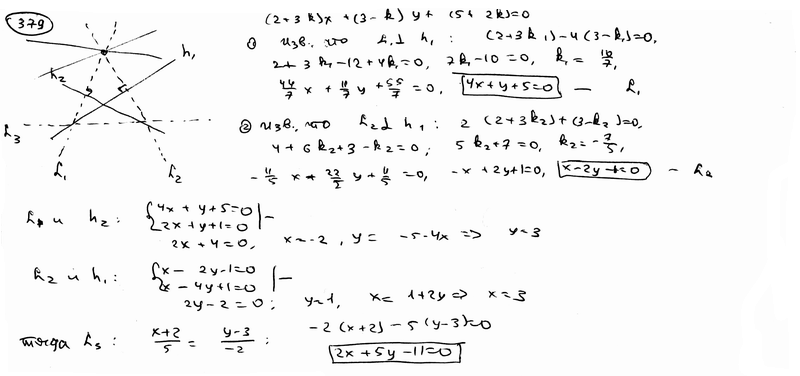 379
(2+3k)x + (3-k)y + (5+2k)=0
① изв., что L₁⊥ h₁ : (2+3k₁)-4(3-k₁)=0,
2+3k₁-12+4k₁=0, 7k₁-10=0, k₁ = 10/7,
44/7 x + 11/7 y + 55/7 = 0, 4x+y+5=0 — L₁
② изв., что L₂⊥ h₂ : 2(2+3k₂)+(3-k₂)=0,
4+6k₂+3-k₂=0; 5k₂+7=0, k₂=-7/5,
-11/5 x + 22/5 y + 11/5 = 0, -x+2y+1=0, x-2y-1=0 — L₂
L₁ и h₂ : {4x+y+5=0 |-
2x+y+1=0
2x+4=0, x=-2, y= -5-4x => y=3
L₂ и h₁ : {x-2y-1=0 |-
x-4y+1=0
2y-2=0; y=1, x=1+2y => x=3
тогда L₃ : (x+2)/5 = (y-3)/-2 ; -2(x+2)-5(y-3)=0
2x+5y-11=0
h₁
h₂
L₃
L₁
L₂